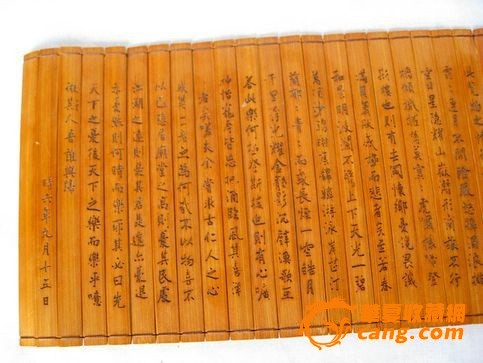 空日星隱耀山岳潛形商旅不行
檣傾楫摧薄暮冥冥虎嘯猿啼登
斯樓也則有去國懷鄉憂讒畏譏
滿目蕭然感極而悲者矣至若春
和景明波瀾不驚上下天光一碧
萬頃沙鷗翔集錦鱗游泳岸芷汀
蘭郁:青:而或長煙一空皓月
千里浮光耀金靜影沉璧漁歌互
答此樂何極登斯樓也則有心曠
神怡寵辱皆忘把酒臨風其喜洋
者矣嗟夫余嘗求古仁人之心
或異二者之為何哉不以物喜不
以己悲居廟堂之高則憂其民處
江湖之遠則憂其君是進亦憂退
亦憂然則何時而樂耶其必曰先
天下之憂後天下之樂而樂乎噫
微其人吾誰與歸
時六年九月十五日
華夏收藏網
cang.com